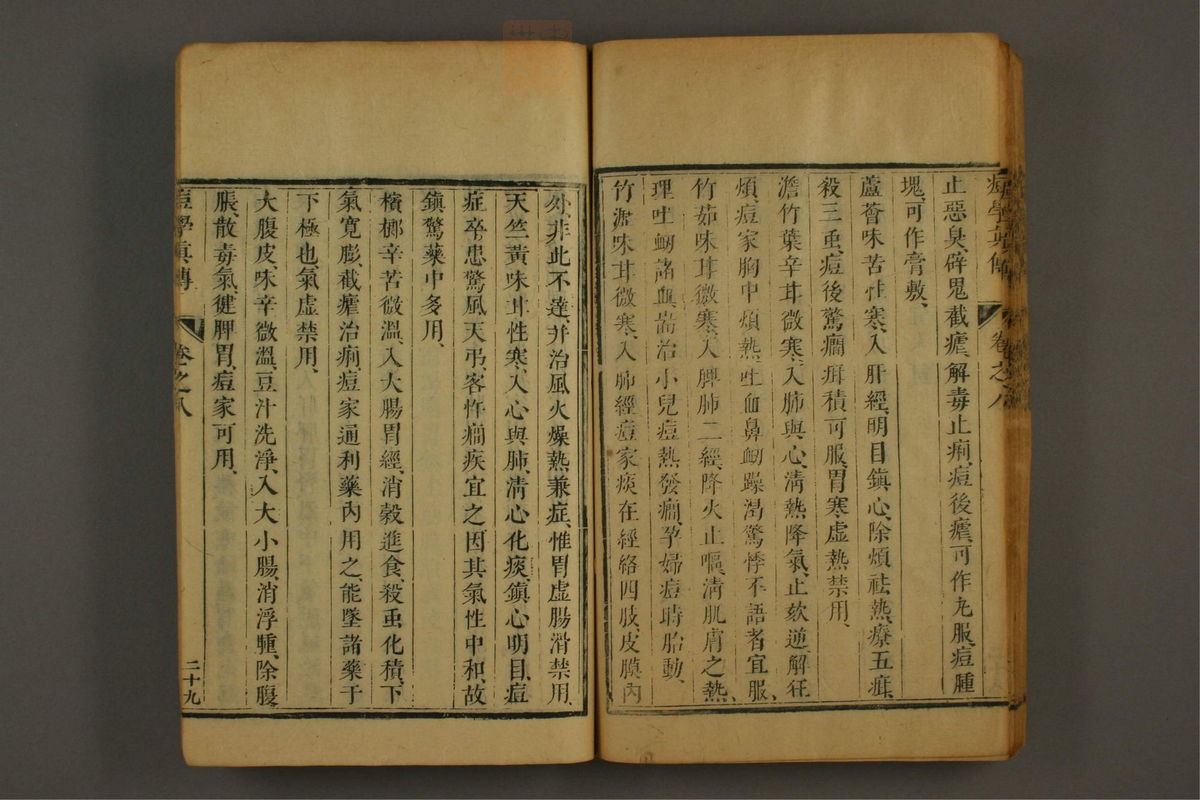 止惡臭、辟鬼截瘧、解毒止痢、痘後瘧、可作丸服、痘腫
塊、可作膏敷、
蘆薈味苦性寒、入肝經、明目鎮心、除煩祛熱、療五疳、
殺三虫、痘後驚癎疳積可服、胃寒虛熱禁用、
澹竹葉辛甘微寒、入肺與心、清熱降氣、止欬逆、解狂
煩、痘家胸中煩熱、吐血鼻衄、躁渴驚悸不語者宜服、
竹茹味甘微寒、入脾肺二經、降火止嘔、清肌膚之熱、
理吐衄諸血、耑治小兒痘熱發癎、孕婦痘時胎動、
竹瀝味甘微寒、入肺經、痘家痰在經絡四肢、皮膜內
外、非此不達、并治風火燥熱兼症、惟胃虛腸滑禁用、
天竺黃味甘性寒、入心與肺、清心化痰、鎮心明目、痘
症卒患驚風天弔、客忤癎疾宜之、因其氣性中和、故
鎮驚藥中多用、
檳榔辛苦微溫、入大腸胃經、消穀進食、殺虫化積、下
氣寬膨、截瘧治痢、痘家通利藥內用之、能墜諸藥于
下極也、氣虛禁用、
大腹皮味辛微溫、豆汁洗淨、入大小腸、消浮腫、除腹
脹、散毒氣、健脾胃、痘家可用、
痘學真傳 卷之八 二十九